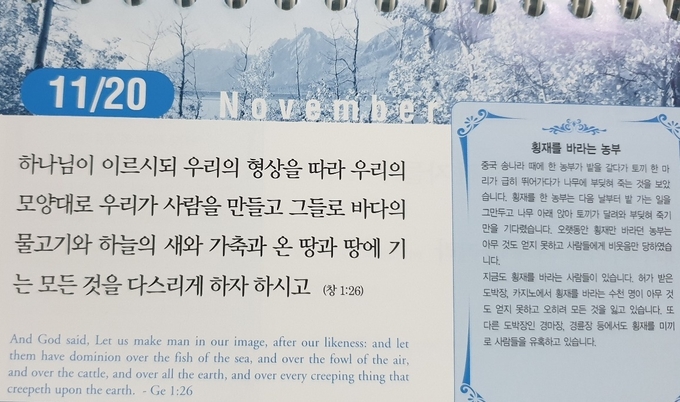 11/20
November
하나님이 이르시되 우리의 형상을 따라 우리의
모양대로 우리가 사람을 만들고 그들로 바다의
물고기와 하늘의 새와 가축과 온 땅과 땅에 기
는 모든 것을 다스리게 하자 하시고 (창 1:26)
And God said, Let us make man in our image, after our likeness: and let
them have dominion over the fish of the sea, and over the fowl of the air,
and over the cattle, and over all the earth, and over every creeping thing that
creepeth upon the earth. - Ge 1:26
횡재를 바라는 농부
중국 송나라 때에 한 농부가 밭을 갈다가 토끼 한 마
리가 급히 뛰어가다가 나무에 부딪혀 죽는 것을 보았
습니다. 횡재를 한 농부는 다음 날부터 밭 가는 일을
그만두고 나무 아래 앉아 토끼가 달려와 부딪혀 죽기
만을 기다렸습니다. 오랫동안 횡재만 바라던 농부는
아무 것도 얻지 못하고 사람들에게 비웃음만 당하였습
니다.
지금도 횡재를 바라는 사람들이 있습니다. 허가 받은
도박장, 카지노에서 횡재를 바라는 수천 명이 아무 것
도 얻지 못하고 오히려 모든 것을 잃고 있습니다. 또
다른 도박장인 경마장, 경륜장 등에서도 횡재를 미끼
로 사람들을 유혹하고 있습니다.